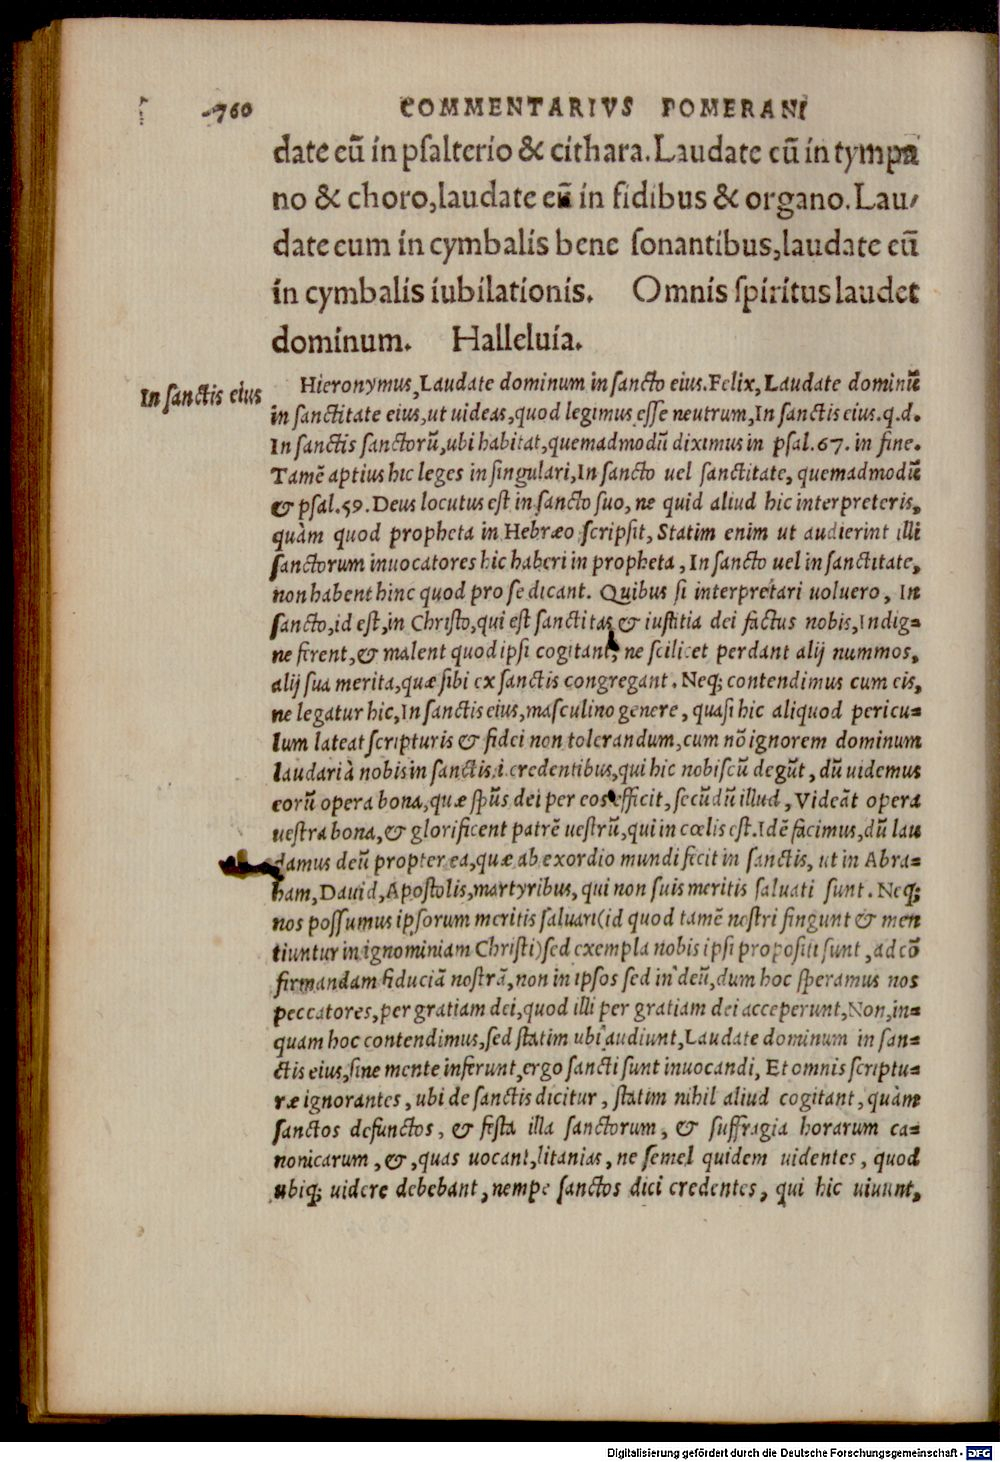 760 COMMENTARIVS POMERANI
date eũ in psalterio & cithara. Laudate eũ in tympa
no & choro, laudate eũ in fidibus & organo. Lau/
date eum in cymbalis bene sonantibus, laudate eũ
in cymbalis iubilationis. Omnis spiritus laudet
dominum. Halleluia.
In sanctis eius
Hieronymus, Laudate dominum in sancto eius. Felix, Laudate dominũ
in sanctitate eius, ut uideas, quod legimus esse neutrum, In sanctis eius. q.d.
In sanctis sanctorũ, ubi habitat, quemadmodũ diximus in psal. 67. in fine.
Tamẽ aptius hic leges in singulari, In sancto uel sanctitate, quemadmodũ
& psal. 59. Deus locutus est in sancto suo, ne quid aliud hic interpreteris,
quàm quod propheta in Hebræo scripsit, Statim enim ut audierint illi
sanctorum inuocatores hic haberi in propheta, In sancto uel in sanctitate,
non habent hinc quod pro se dicant. Quibus si interpretari uoluero, In
sancto, id est, in Christo, qui est sanctitas & iustitia dei factus nobis, Indig=
ne ferent, & malent quod ipsi cogitant, ne scilicet perdant alij nummos,
alij sua merita, quæ sibi ex sanctis congregant. Neq; contendimus cum eis,
ne legatur hic, In sanctis eius, masculino genere, quasi hic aliquod pericu=
lum lateat scripturis & fidei non tolerandum, cum nõ ignorem dominum
laudari à nobis in sanctis .i. credentibus, qui hic nobiscũ degũt, dũ uidemus
eorũ opera bona, quæ spũs dei per eos efficit, secũdũ illud, Videãt opera
uestra bona, & glorificent patrẽ uestrũ, qui in cœlis est. Idẽ facimus, dũ lau
damus deũ propter ea, quæ ab exordio mundi fecit in sanctis, ut in Abra=
ham, Dauid, Apostolis, martyribus, qui non suis meritis saluati sunt. Neq;
nos possumus ipsorum meritis saluari (id quod tamẽ nostri fingunt & men
tiuntur in ignominiam Christi) sed exempla nobis ipsi propositi sunt, ad cõ
firmandam fiduciã nostrã, non in ipsos sed in deũ, dum hoc speramus nos
peccatores, per gratiam dei, quod illi per gratiam dei acceperunt, Non, in=
quam hoc contendimus, sed statim ubi audiunt, Laudate dominum in san=
ctis eius, sine mente inferunt, ergo sancti sunt inuocandi, Et omnis scriptu=
ræ ignorantes, ubi de sanctis dicitur, statim nihil aliud cogitant, quàm
sanctos defunctos, & festa illa sanctorum, & suffragia horarum ca=
nonicarum, &, quas uocant, litanias, ne semel quidem uidentes, quod
ubiq; uidere debebant, nempe sanctos dici credentes, qui hic uiuunt,
Digitalisierung gefördert durch die Deutsche Forschungsgemeinschaft - DFG